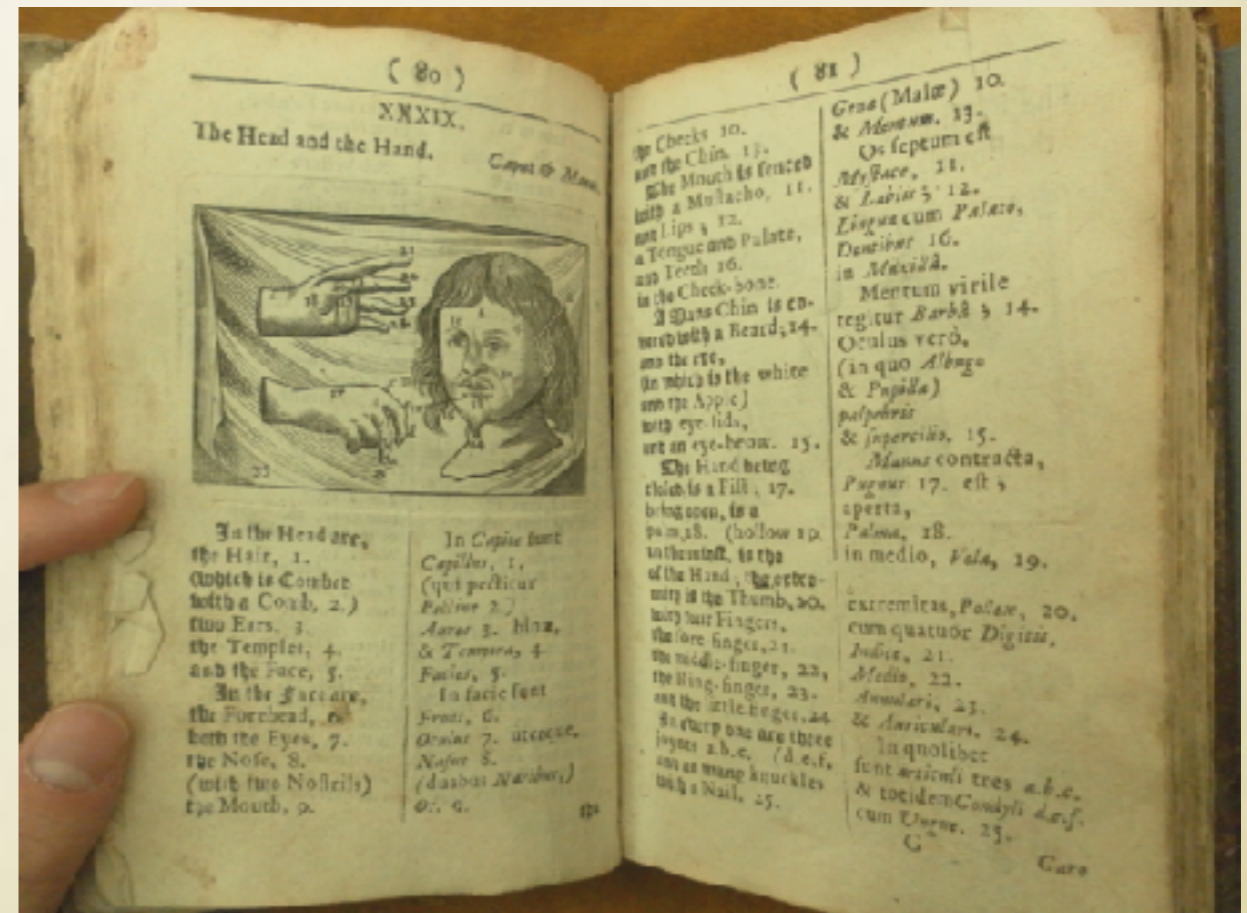 ( 80 )
XXXIX.
The Head and the Hand.
Caput & Manus.
In the Head are,
the Hair, 1.
(which is Combed
with a Comb, 2.)
two Ears, 3.
the Temples, 4.
and the Face, 5.
In the Face are,
the Forehead, 6.
both the Eyes, 7.
the Nose, 8.
(with two Nostrils)
the Mouth, 9.
In Capite sunt
Capillus, 1.
(qui pectitur
Pectine 2.)
Aures 3. binæ,
& Tempora, 4
Facies, 5.
In facie sunt
Frons, 6.
Oculus 7. uterque,
Nasus 8.
(duabus Naribus,)
Os, 9.
( 81 )
the Cheeks 10.
and the Chin. 13.
The Mouth is fenced
with a Mustacho, 11.
and Lips; 12.
a Tongue and Palate,
and Teeth 16.
in the Cheek-bone.
A Mans Chin is co-
vered with a Beard; 14.
and the eye,
(in which is the white
and the Apple)
with eye-lids,
and an eye-brow. 15.
The Hand being
closed is a Fist, 17.
being open, is a
palm, 18. (hollow 19.
in the midst, is the
of the Hand, the extre-
mity is the Thumb, 20.
with four Fingers,
the fore finger, 21.
the middle-finger, 22,
the Ring-finger, 23.
and the little finger, 24
In every one are three
joynts a.b.c. (d.e.f.
and as many knuckles
with a Nail, 25.
Genæ (Malæ) 10.
& Mentum. 13.
Os septum est
Mystace, 11.
& Labiis; 12.
Lingua cum Palato,
Dentibus 16.
in Maxillâ.
Mentum virile
tegitur Barbâ; 14.
Oculus verò,
(in quo Albugo
& Pupilla)
palpebris
& supercilio, 15.
Manus contracta,
Pugnus 17. est;
aperta,
Palma, 18.
in medio, Vola, 19.
extremitas, Pollex, 20.
cum quatuor Digitis,
Indice, 21.
Medio, 22.
Annulari, 23.
& Auriculari, 24.
In quolibet
sunt articuli tres a.b.c.
& totidem Condyli d.e.f.
cum Ungue. 25.
C
Caro